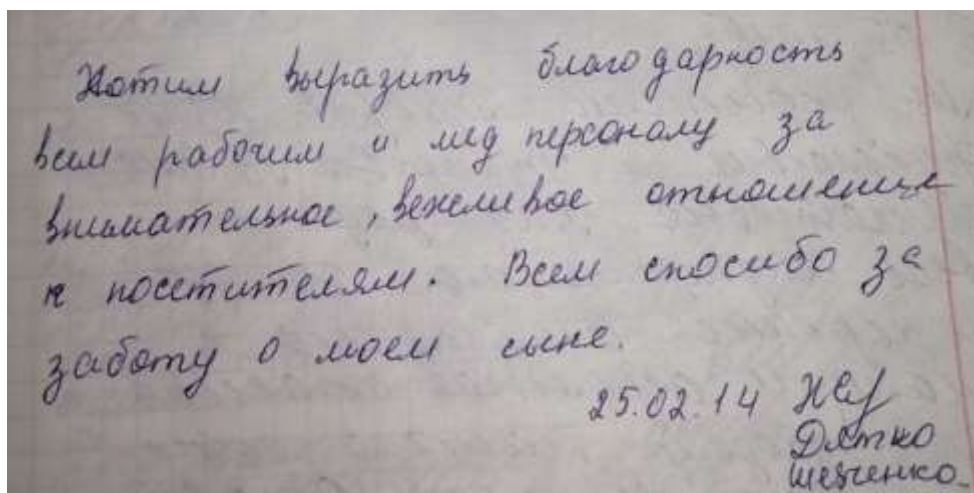 Хотим выразить благодарность
всем рабочим и мед персоналу за
внимательное, вежеливое отношение
к посетителям. Всем спосибо за
заботу о моем сыне.
25.02.14
Дятко
Шевченко